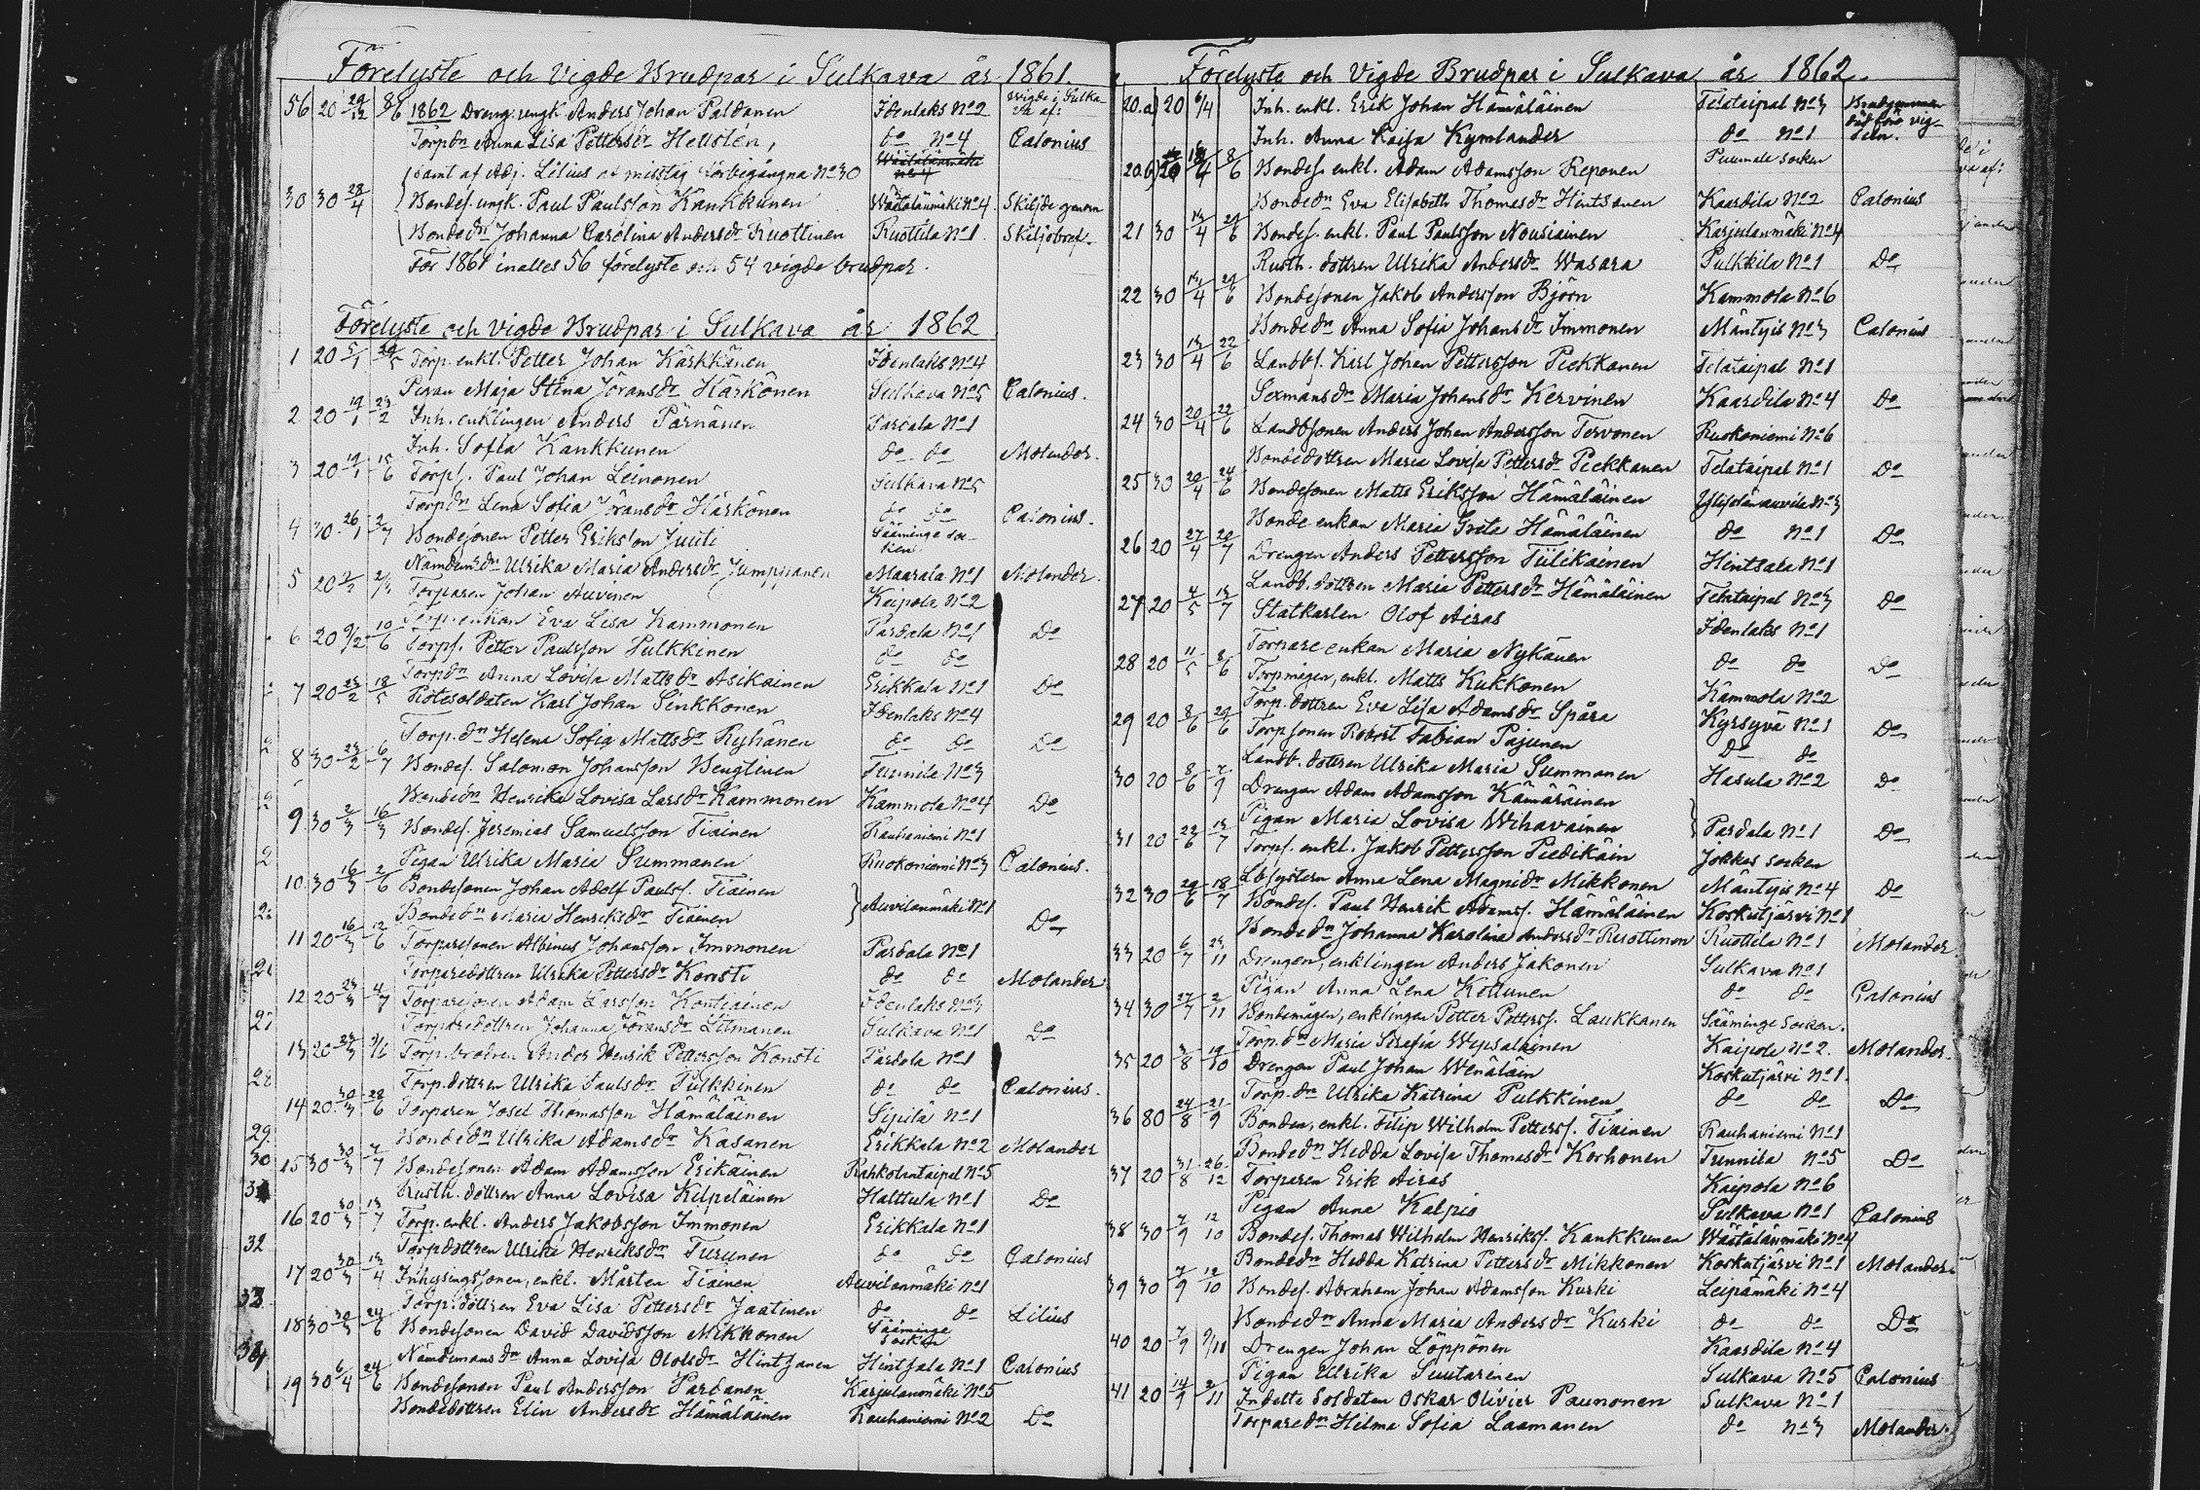 Förelyste och Vigde Brudpar i Sulkava år 1861.
56 20 29/12 8/6 1862 Dreng. ungk Anders Johan Paldanen Idenlaks No 2 Vigde i Sulkava af:
Torpdn Anna Lisa Pettersdr Hellstén, do No 4 Calonius
samt af Adj. Lilius af misstag förbigångna No 30
30 30 28/4 Bondes. ungk. Paul Paulsson Kankkunen Wäätälänmäki No 4. Skiljde genom
Bondedn Johanna Carolina Andersdr Ruottinen Ruottila No 1. Skiljobref.
För 1861 inalles 56 förelyste och 54 vigde brudpar.
Förelyste och Vigde Brudpar i Sulkava år 1862
1 20 5/1 Torp. enkl. Petter Johan Kärkkänen Idenlaks No 4
Pigan Maja Stina Jöransdr Härkönen Sulkava No 5 Calonius.
2 20 19/1 23/2 Inh. enklingen Anders Pärnänen Pardala No 1
Inh. Sofia Kankkunen do do Molander.
3 20 19/1 15/6 Torps. Paul Johan Leinonen Sulkava No 5
Torpdn Lena Sofia Jöransdr Härkönen do do Calonius.
4 30 26/1 2/7 Bondesonen Petter Eriksson Juuti Sääminge socken
Nämdemsdn Ulrika Maria Andersdr Jumppanen Maarala No 1 Molander.
5 20 2/2 Torparen Johan Auvinen Kaipola No 2
Torp. enkan Eva Lisa Kammonen Pardala No 1 Do
6 20 9/2 10/6 Torps. Petter Paulsson Pulkkinen do do
Torpdn Anna Lovisa Mattsdr Asikainen Erikkala No 1 Do
7 20 23/2 18/5 Rotesoldaten Karl Johan Sinkkonen Idenlaks No 4
Torp. dn Helena Sofia Mattsdr Ryhänen do do Do
8 30 23/2 6/7 Bondes. Salomon Johansson Reuglinen Tunnila No 3
Bondedn Henrika Lovisa Larsdr Kammonen Kammola No 4 Do
9 30 2/3 16/3 Bondes. Jeremias Samuelsson Tiainen Rauhaniemi No 1
Pigan Ulrika Maria Summanen Ruokoniemi No 3 Calonius.
10 30 16/3 2/6 Bondesonen Johan Adolf Paulss. Tiainen
Bondedn Maria Henriksdr Tiainen Auvilanmäki No 1 Do
11 20 16/3 12/6 Torparesonen Albinus Johansson Immonen Pardala No 1
Torparedottren Ulrika Pettersdr Konsti do do Molander
12 20 23/3 4/7 Torparesonen Adam Larsson Kontiainen Idenlaks No 3
Torparedottren Johanna Jöransdr Litmanen Sulkava No 1 Do
13 20 23/3 9/6 Torp. brodren Anders Henrik Pettersson Konsti Pardala No 1
Torp. dottren Ulrika Paulsdr Pulkkinen do do Calonius.
14 20 30/3 28/6 Torparen Josef Thomasson Hämäläinen Sipilä No 1
Bondedn Ulrika Adamsdr Kasanen Erikkala No 2 Molander
15 30 30/3 7/7 Bondesonen Adam Adamsson Erikäinen Rahkolintaipal No 5
Rusth. dottren Anna Lovisa Kilpeläinen Halttula No 1 Do
16 20 30/3 13/7 Torp. enkl. Anders Jakobsson Immonen Erikkala No 1
Torpdottren Ulrika Henriksdr Turunen do do Calonius
17 20 30/3 13/4 Inhysingssonen, enkl. Mårten Tiainen Auvilanmäki No 1
Torp. dottren Eva Lisa Pettersdr Jaatinen do do Lilius
18 30 30/3 24/6 Bondesonen David Davidsson Mikkonen Sääminge Socken
Nämdemans dr Anna Lovisa Olofsdr Hintsanen Hintsala No 1 Calonius
19 30 6/4 24/6 Bondesonen Paul Andersson Pardanen Karjulanmäki No 5
Bondedottren Elin Andersdr Hämäläinen Rauhaniemi No 2 Do
Förelyste och Vigde Brudpar i Sulkava år 1862.
20.a) 20 6/4 Inh. enkl. Erik Johan Hämäläinen Telataipal No 3 Brudgummen
Inh. Anna Kaisa Kymlander do No 1 död före vigseln.
20.b) 20 8/6 Bondes. enkl. Adam Adamsson Reponen Puumala socken
Bondedn Eva Elisabeth Thomasdr Hintsanen Kaardila No 2 Calonius
21 30 13/4 29/6 Bondes. enkl. Paul Paulsson Nousiainen Karjulanmäki No 4
Rusth. dottren Ulrika Andersdr Wasara Pulkkila No 1 Do
22 30 13/4 29/6 Bondesonen Jakob Andersson Björn Kammola No 6
Bondedn Anna Sofia Johansdr Immonen Mäntyis No 3 Calonius
23 30 13/4 22/6 Landbs. Karl Johan Pettersson Peekkanen Telataipal No 1
Sexmansdr Maria Johansdr Kervinen Kaardila No 4 Do
24 30 20/4 22/6 Landbsonen Anders Johan Andersson Tervonen Ruokoniemi No 6
Bondedottren Maria Lovisa Pettersdr Peekkanen Telataipal No 1 Do
25 30 20/4 24/6 Bondesonen Matts Eriksson Hämäläinen No 3
Bonde enkan Maria Greta Hämäläinen do No 1 Do
26 20 27/4 20/7 Drengen Anders Pettersson Tiilikainen Hintsala No 1
Landb. dottren Maria Pettersdr Hämäläinen Telataipal No 3 Do
27 20 4/5 13/7 Statkarlen Olof Airas Idenlaks No 1
Torpare enkan Maria Nykänen do do Do
28 20 11/5 8/6 Torpmågen, enkl. Matts Kukkonen Kammola No 2
Torp. dottren Eva Lisa Adamsdr Spåra Kyrsyvä No 1 Do
29 20 8/6 29/6 Torpsonen Robert Fabian Pajunen do do
Landb. dottren Ulrika Maria Summanen Hasula No 2 Do
30 20 8/6 7/9 Drengen Adam Adamsson Kämäräinen
Pigan Maria Lovisa Wihavainen Pardala No 1 Do
31 20 22/6 13/7 Torps. enkl. Jakob Pettersson Piedikäin Jokkas socken
Lbsystern Anna Lena Magnidr Mikkonen Mäntyis No 4 Do
32 30 29/6 18/7 Bondes. Paul Henrik Adamss. Hämäläinen Koskutjärvi No 1
Bondedn Johanna Karolina Andersdr Ruottinen Ruottila No 1 Molander
33 20 6/7 23/11 Drengen, enklingen Anders Jakonen Sulkava No 1
Pigan Anna Lena Kettunen do do Calonius
34 30 27/7 2/11 Bondemågen, enklingen Petter Petterss. Laukkanen Sääminge Socken.
Torp. dr Maria Serafia Wepsäläinen Kaipola No 2. Molander.
35 20 3/8 19/10 Drengen Paul Johan Wenäläin Koskutjärvi No 1.
Torp. dr Ulrika Katrina Pulkkinen do do Do
36 80 24/8 21/9 Bonden, enkl. Filip Wilhelm Petterss. Tiainen Rauhaniemi No 1
Bondedn Hedda Lovisa Thomasdr Korhonen Tunnila No 5 Do
37 20 31/8 26/12 Torparen Erik Airas Kaipola No 6
Pigan Anna Kalpio Sulkava No 1 Calonius
38 30 7/9 12/10 Bondes. Thomas Wilhelm Henrikss. Kankkunen Wäätälänmäki No 4
Bondedn Hedda Katrina Pettersdr Mikkonen Koskutjärvi No 1 Molander
39 30 7/9 12/10 Bondes. Abraham Johan Adamsson Kurki Leipämäki No 4
Bondedn Anna Maria Andersdr Kurki do do Do
40 20 7/9 9/11 Drengen Johan Löppönen Kaardila No 4
Pigan Ulrika Suutarinen Sulkava No 5 Calonius
41 20 14/9 2/11 Indelte Soldaten Oskar Olivier Paunonen Sulkava No 1
Torparedn Hilma Sofia Laamanen do No 3 Molander.